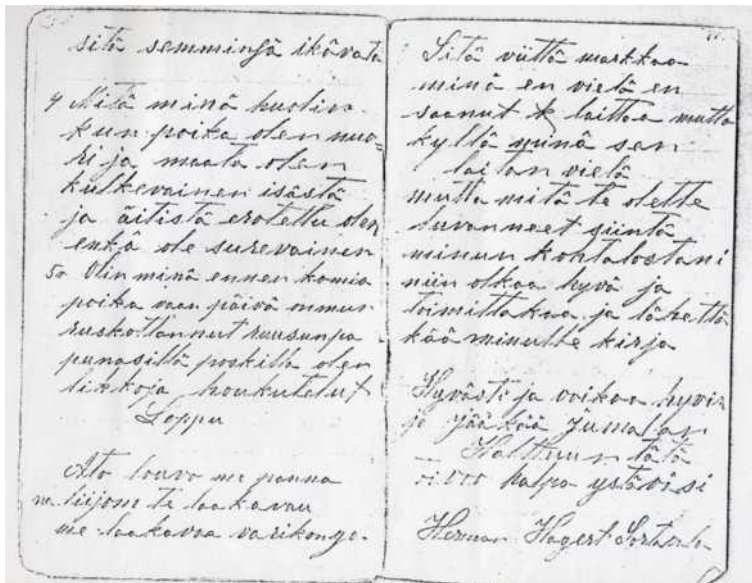 sitä semminsä ikävätä
4 Mitä minä huolin
kun poika olen nuo=
ri ja maata olen
kulkevainen isästä
ja äitistä erotettu olen
enkä ole surevainen
5o Olin minä ennen komia
poika vaan päivä mmun
ruskottannut ruusunpa
punasilla poskilla olen
likkoja houkutelut
Loppu
me panna
te laakavau
me laakavaa
Sitä viittä markkaa
minä en vielä en
saanut laittaa mutta
kyllä minä sen
laitan vielä
mutta mitä te olette
luvanneet siintä
minun kohtalostani
niin olkaa hyvä ja
toimittakaa ja lähettä
kää minulle kirja
Hyvästi ja voikaa hyvin
ja jääkää Jumalan
Halttuun tätä
halpa ystäväsi
Herman Hagert